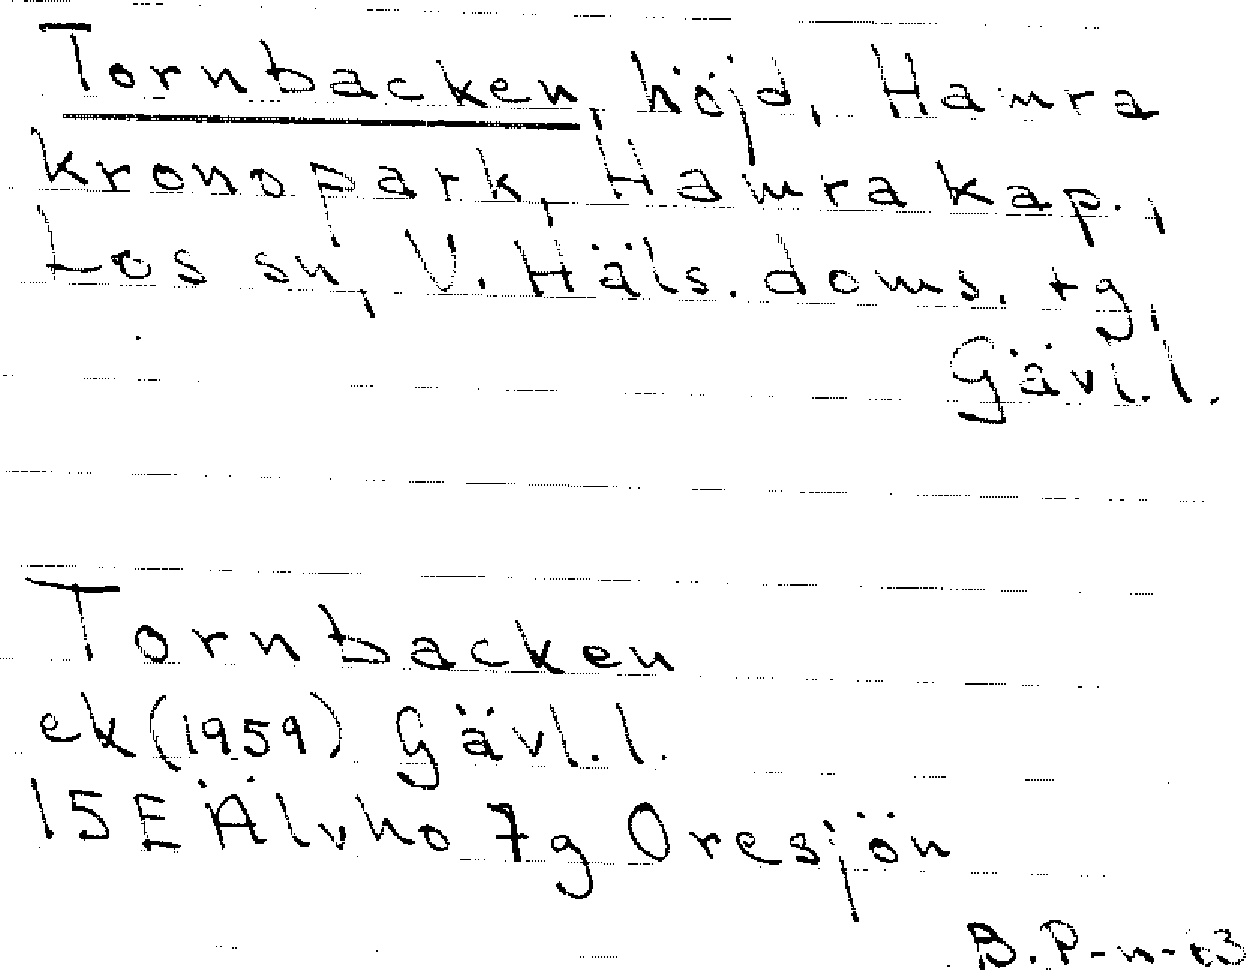 Tornbacken, höjd, Hamra
kronopark, Hamra kap.,
Los sn, V. Häls. doms. tg,
Gävl. l.
Tornbacken
ek (1959) Gävl. l.
15E Älvho 7g Oresjön
B. P-n-63